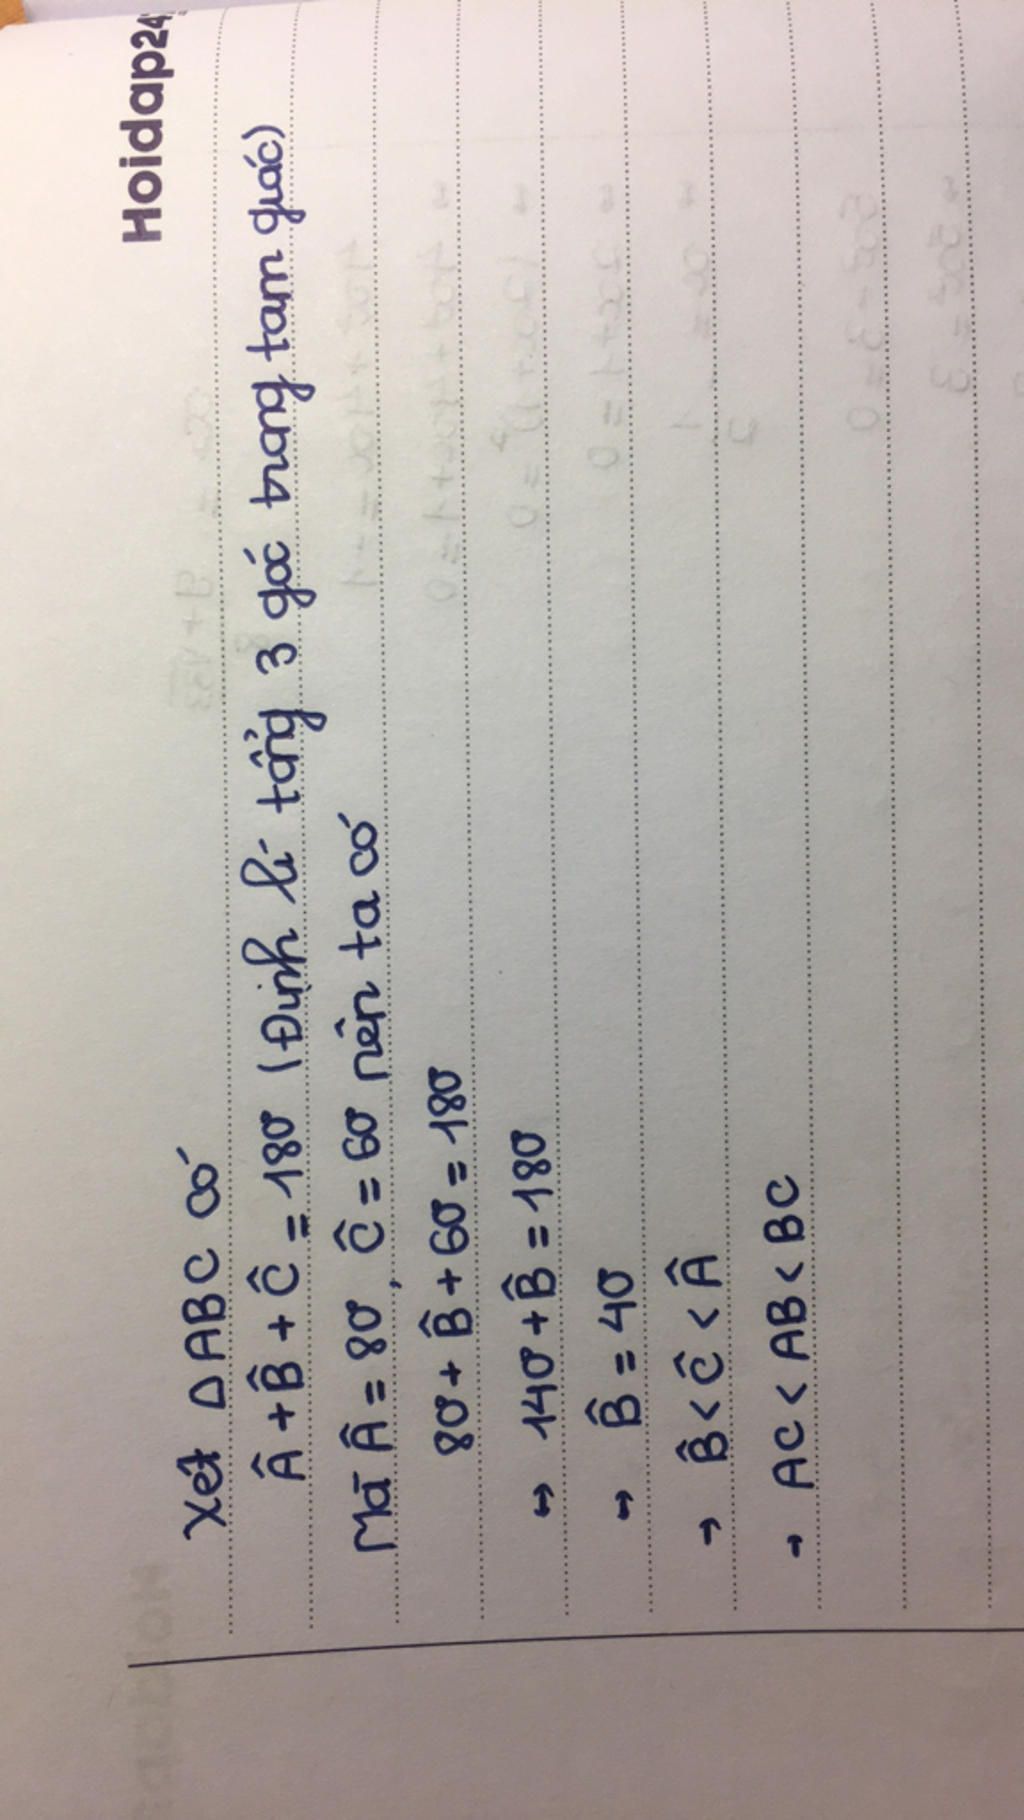 Hoidap24
Xét ΔABC có
Â + B̂ + Ĉ = 180 (Định lí tổng 3 góc trong tam giác)
Mà Â = 80, Ĉ = 60 nên ta có
80 + B̂ + 60 = 180
↔ 140 + B̂ = 180
↔ B̂ = 40
→ B̂ < Ĉ < Â
→ AC < AB < BC